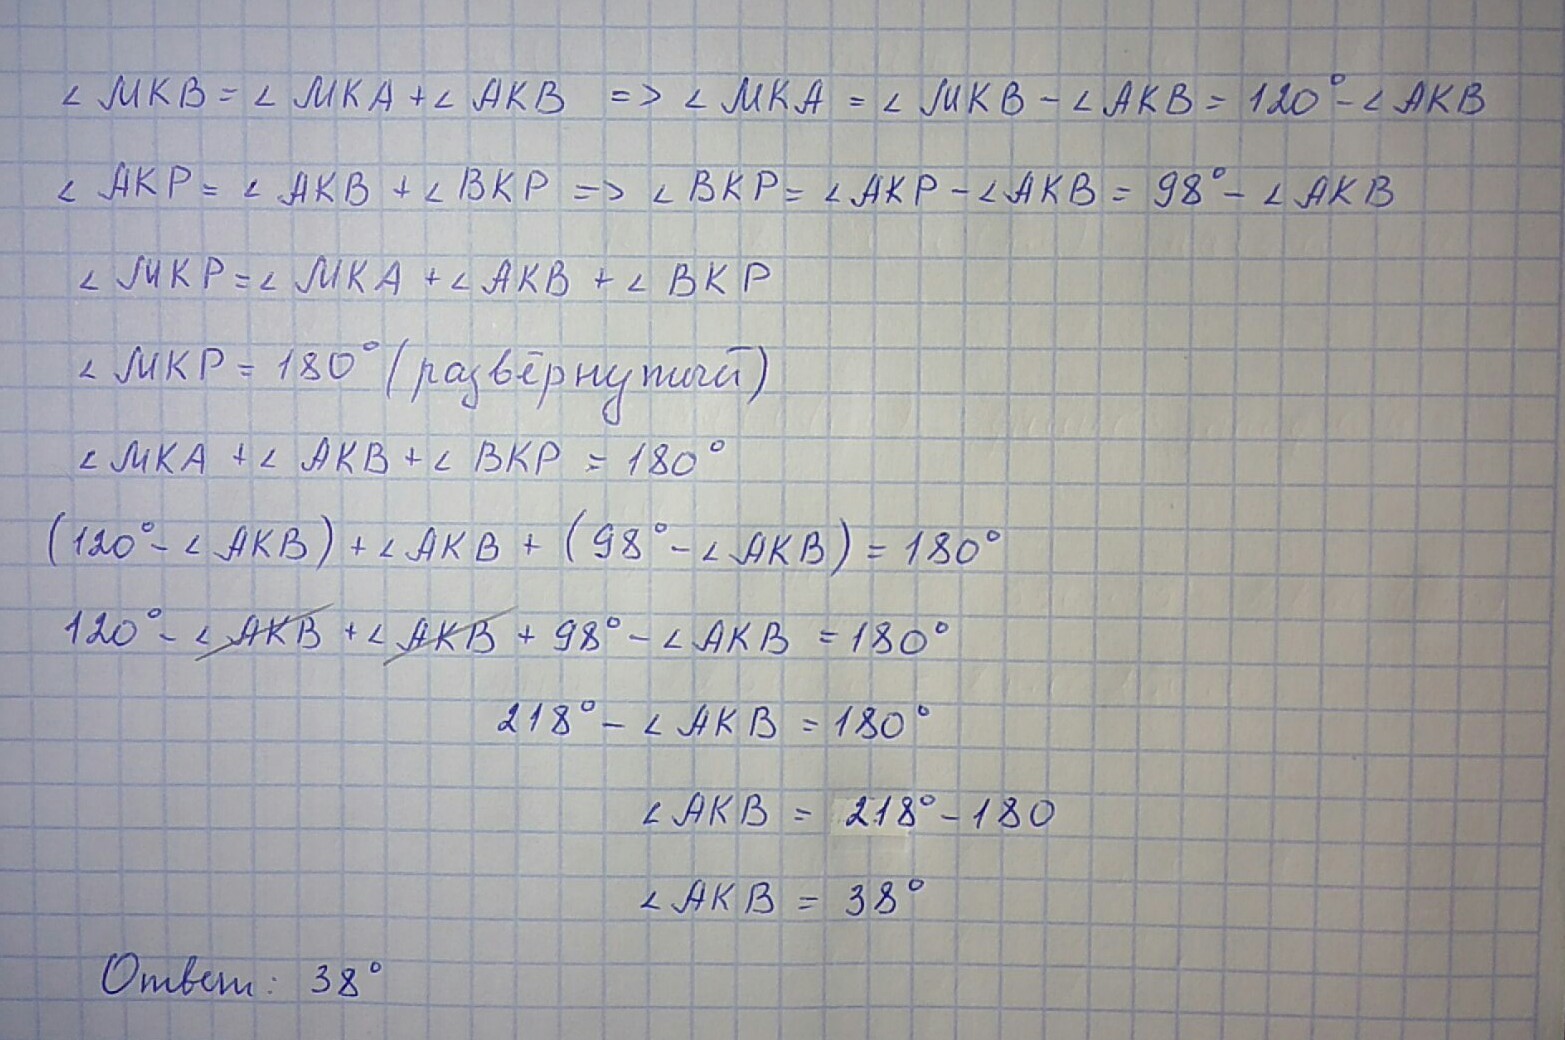 ∠MKB = ∠MKA + ∠AKB => ∠MKA = ∠MKB - ∠AKB = 120° - ∠AKB
∠AKP = ∠AKB + ∠BKP => ∠BKP = ∠AKP - ∠AKB = 98° - ∠AKB
∠MKP = ∠MKA + ∠AKB + ∠BKP
∠MKP = 180° (развёрнутый)
∠MKA + ∠AKB + ∠BKP = 180°
(120° - ∠AKB) + ∠AKB + (98° - ∠AKB) = 180°
120° - ∠AKB + ∠AKB + 98° - ∠AKB = 180°
218° - ∠AKB = 180°
∠AKB = 218° - 180
∠AKB = 38°
Ответ: 38°